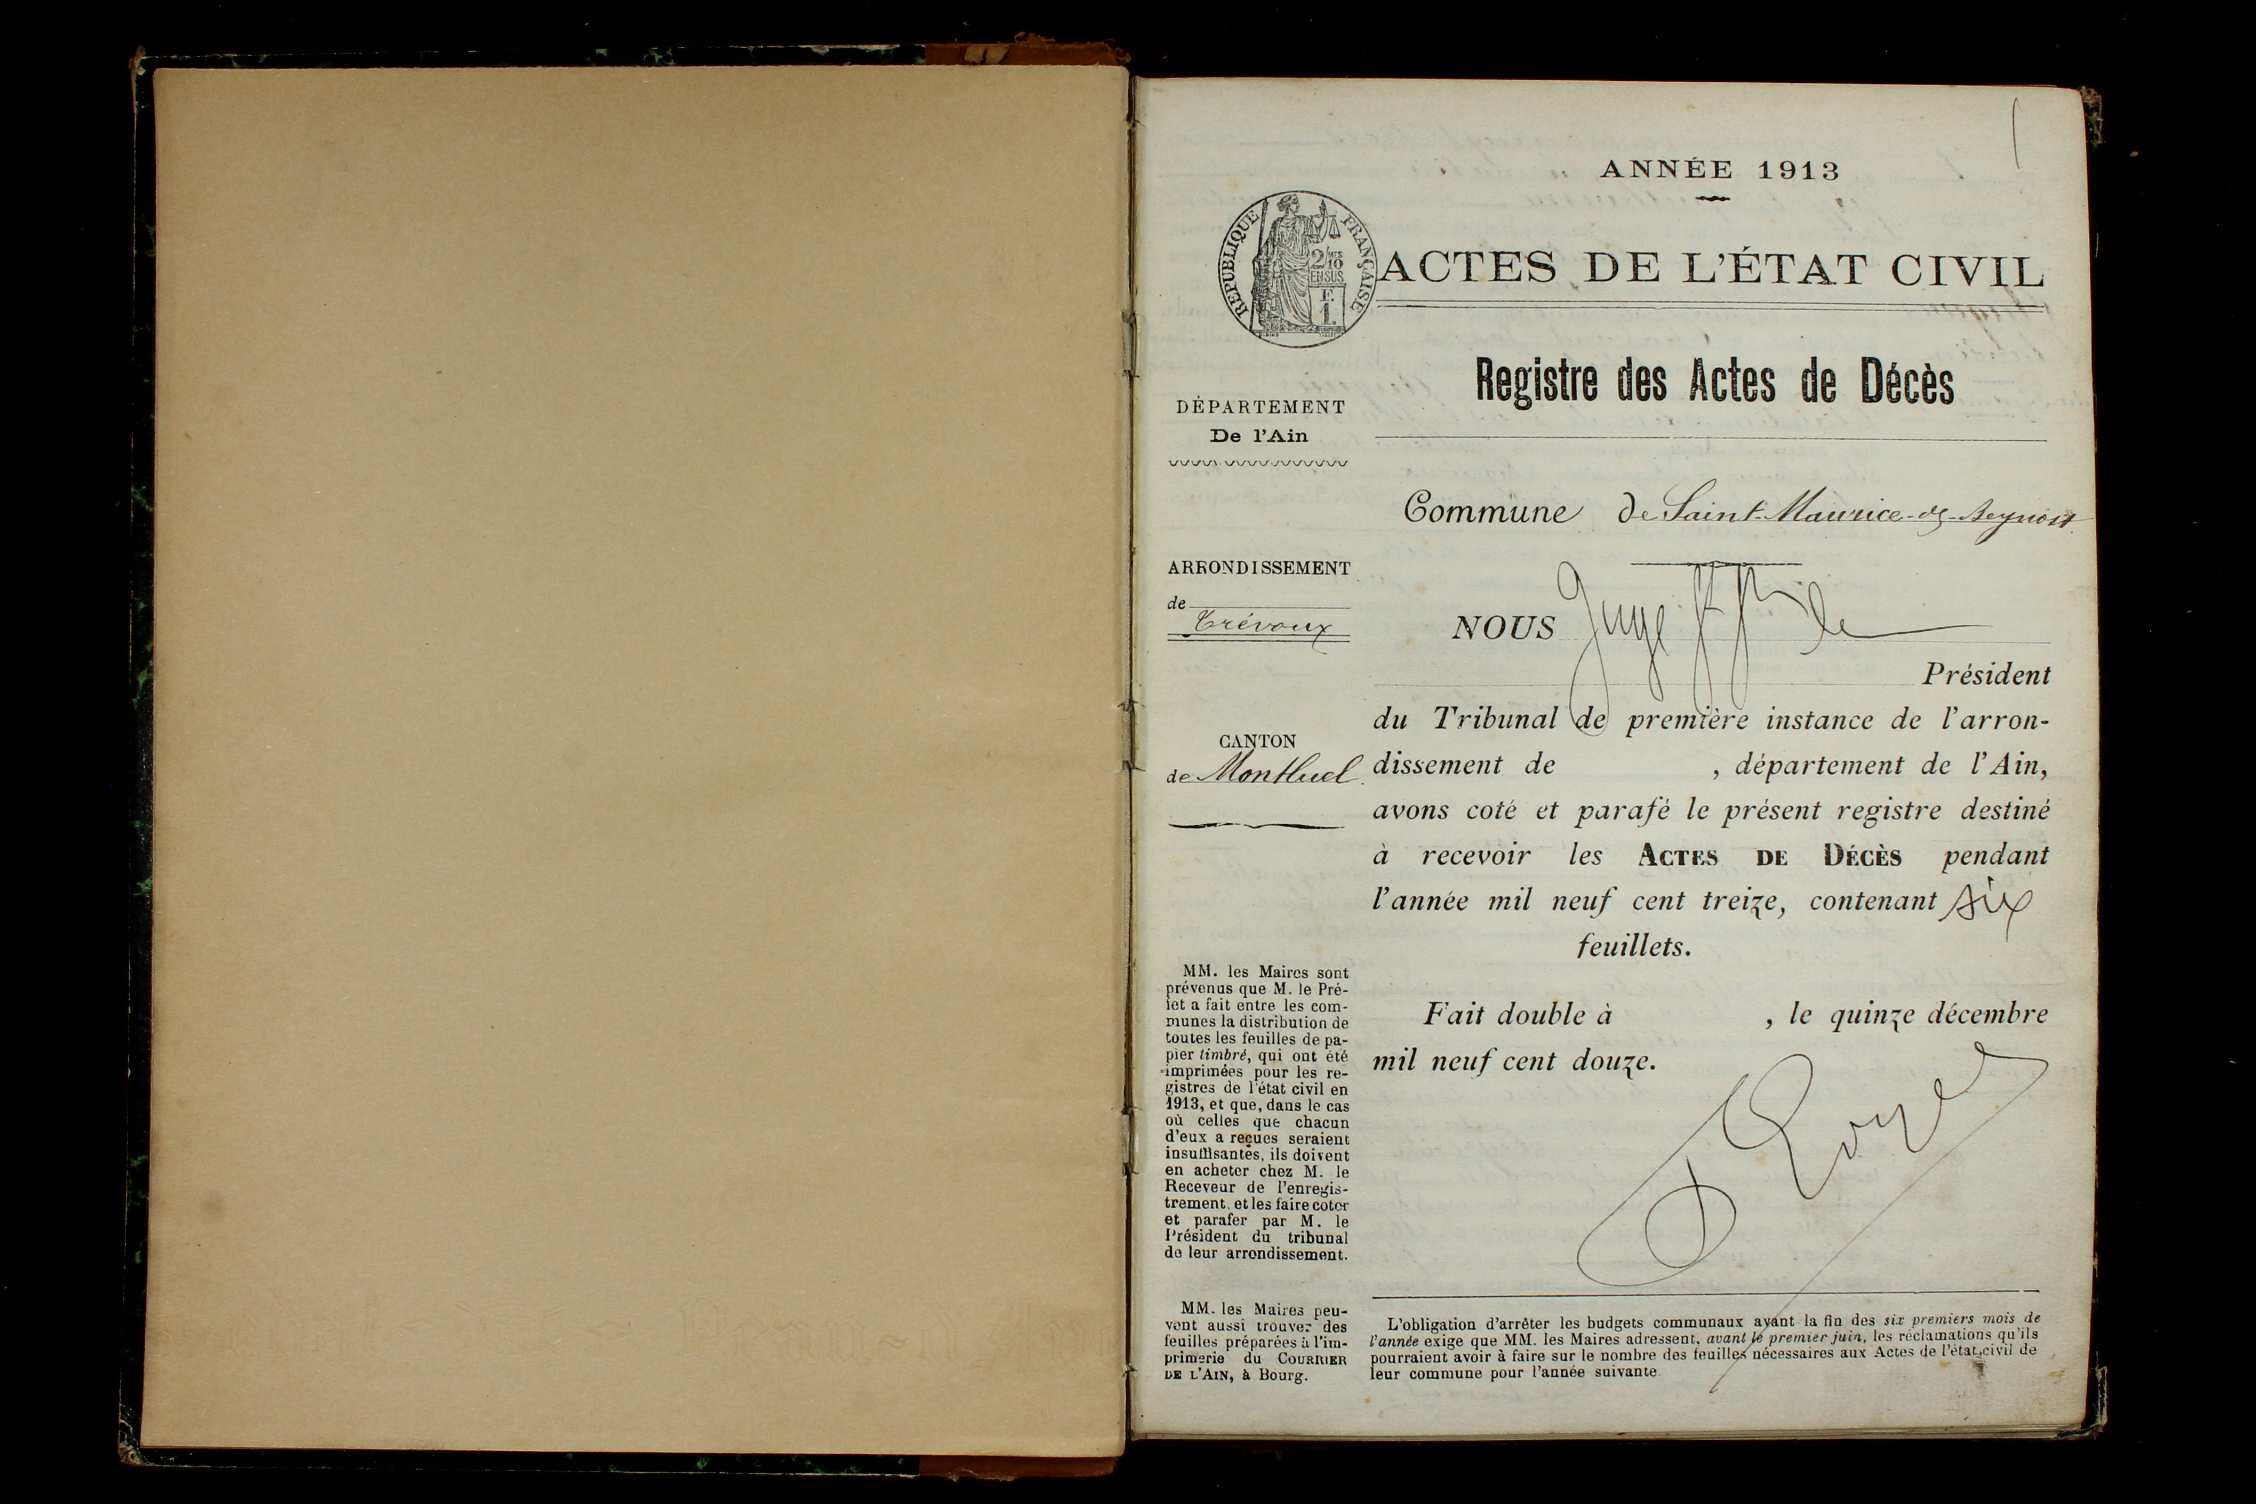 ANNÉE 1913
RÉPUBLIQUE FRANÇAISE
2/10
EN SUS
F.
1.
ACTES DE L'ÉTAT CIVIL
Registre des Actes de Décès
DÉPARTEMENT
De l'Ain
Commune de Saint-Maurice-de-Beynost
ARRONDISSEMENT
de
Trévoux
NOUS Juge
Président
du Tribunal de première instance de l'arron-
dissement de , département de l'Ain,
avons coté et parafé le présent registre destiné
à recevoir les ACTES DE DÉCÈS pendant
l'année mil neuf cent treize, contenant six
feuillets.
CANTON
de Montluel
Fait double à , le quinze décembre
mil neuf cent douze.
MM. les Maires sont
prévenus que M. le Pré-
fet a fait entre les com-
munes la distribution de
toutes les feuilles de pa-
pier timbré, qui ont été
imprimées pour les re-
gistres de l'état civil en
1913, et que, dans le cas
où celles que chacun
d'eux a reçues seraient
insuffisantes, ils doivent
en acheter chez M. le
Receveur de l'enregis-
trement, et les faire coter
et parafer par M. le
Président du tribunal
de leur arrondissement.
MM. les Maires peu-
vent aussi trouver des
feuilles préparées à l'im-
primerie du COURRIER
DE L'AIN, à Bourg.
L'obligation d'arrêter les budgets communaux avant la fin des six premiers mois de
l'année exige que MM. les Maires adressent, avant le premier juin, les réclamations qu'ils
pourraient avoir à faire sur le nombre des feuilles nécessaires aux Actes de l'état civil de
leur commune pour l'année suivante